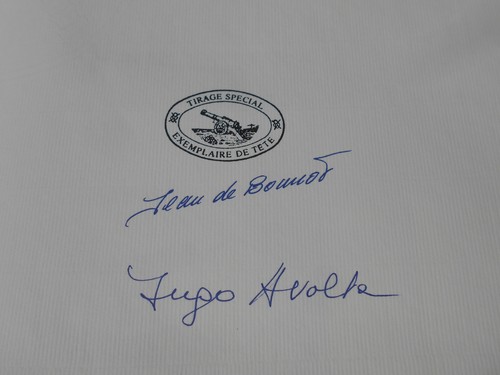 TIRAGE SPECIAL
EXEMPLAIRE DE TETE
Jean de Bonnot
Hugo Avolta